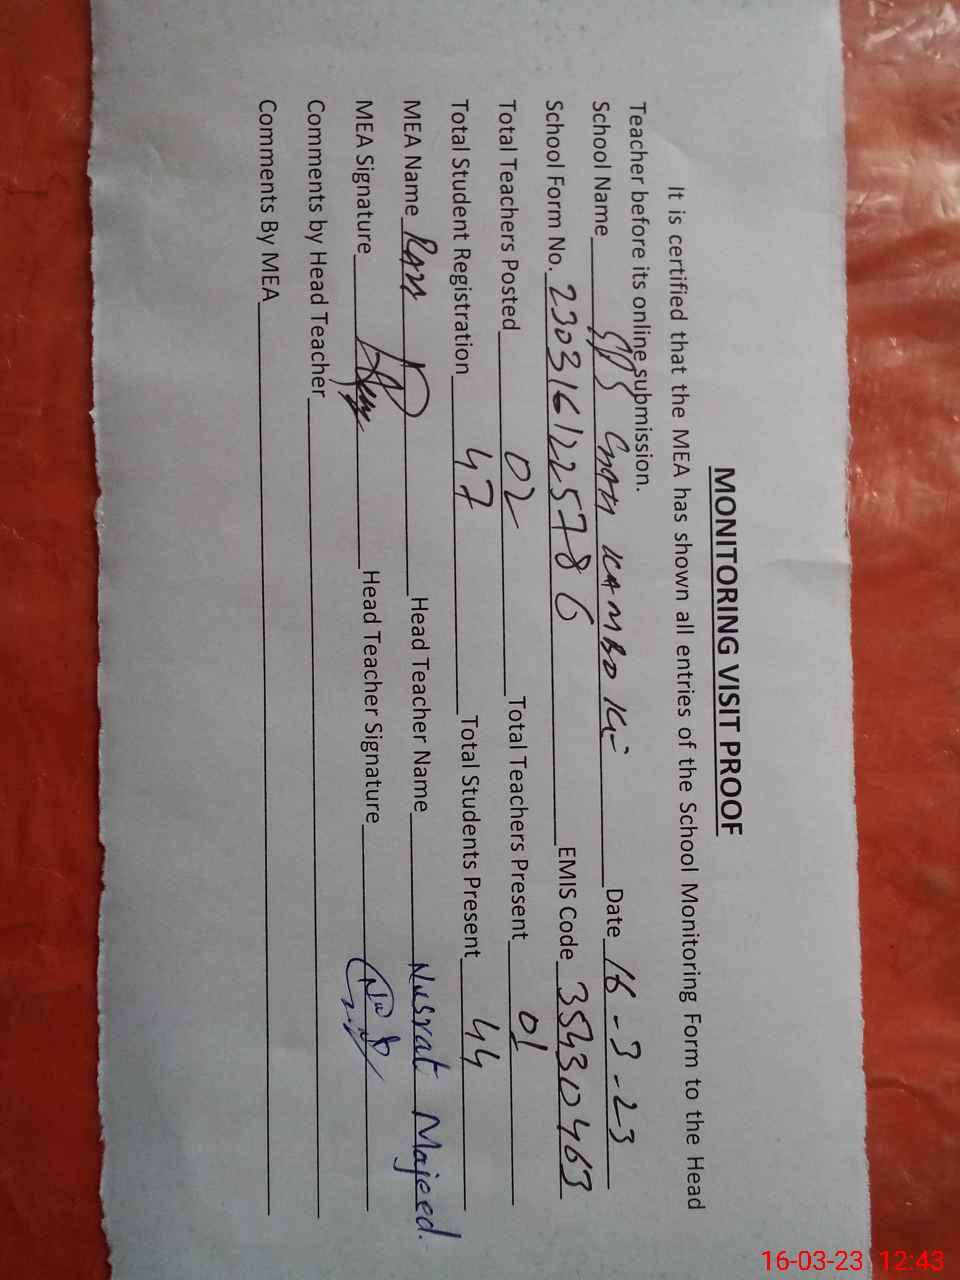 MONITORING VISIT PROOF
It is certified that the MEA has shown all entries of the School Monitoring Form to the Head
Teacher before its online submission.
School Name GPS KAMBO Ki Date 16-3-23
School Form No. 230316122578 6 EMIS Code 35430463
Total Teachers Posted 02 Total Teachers Present 01
Total Student Registration 47 Total Students Present 44
MEA Name Head Teacher Name Nusrat Majeed.
MEA Signature Head Teacher Signature
Comments by Head Teacher
Comments By MEA
16-03-23 12:43